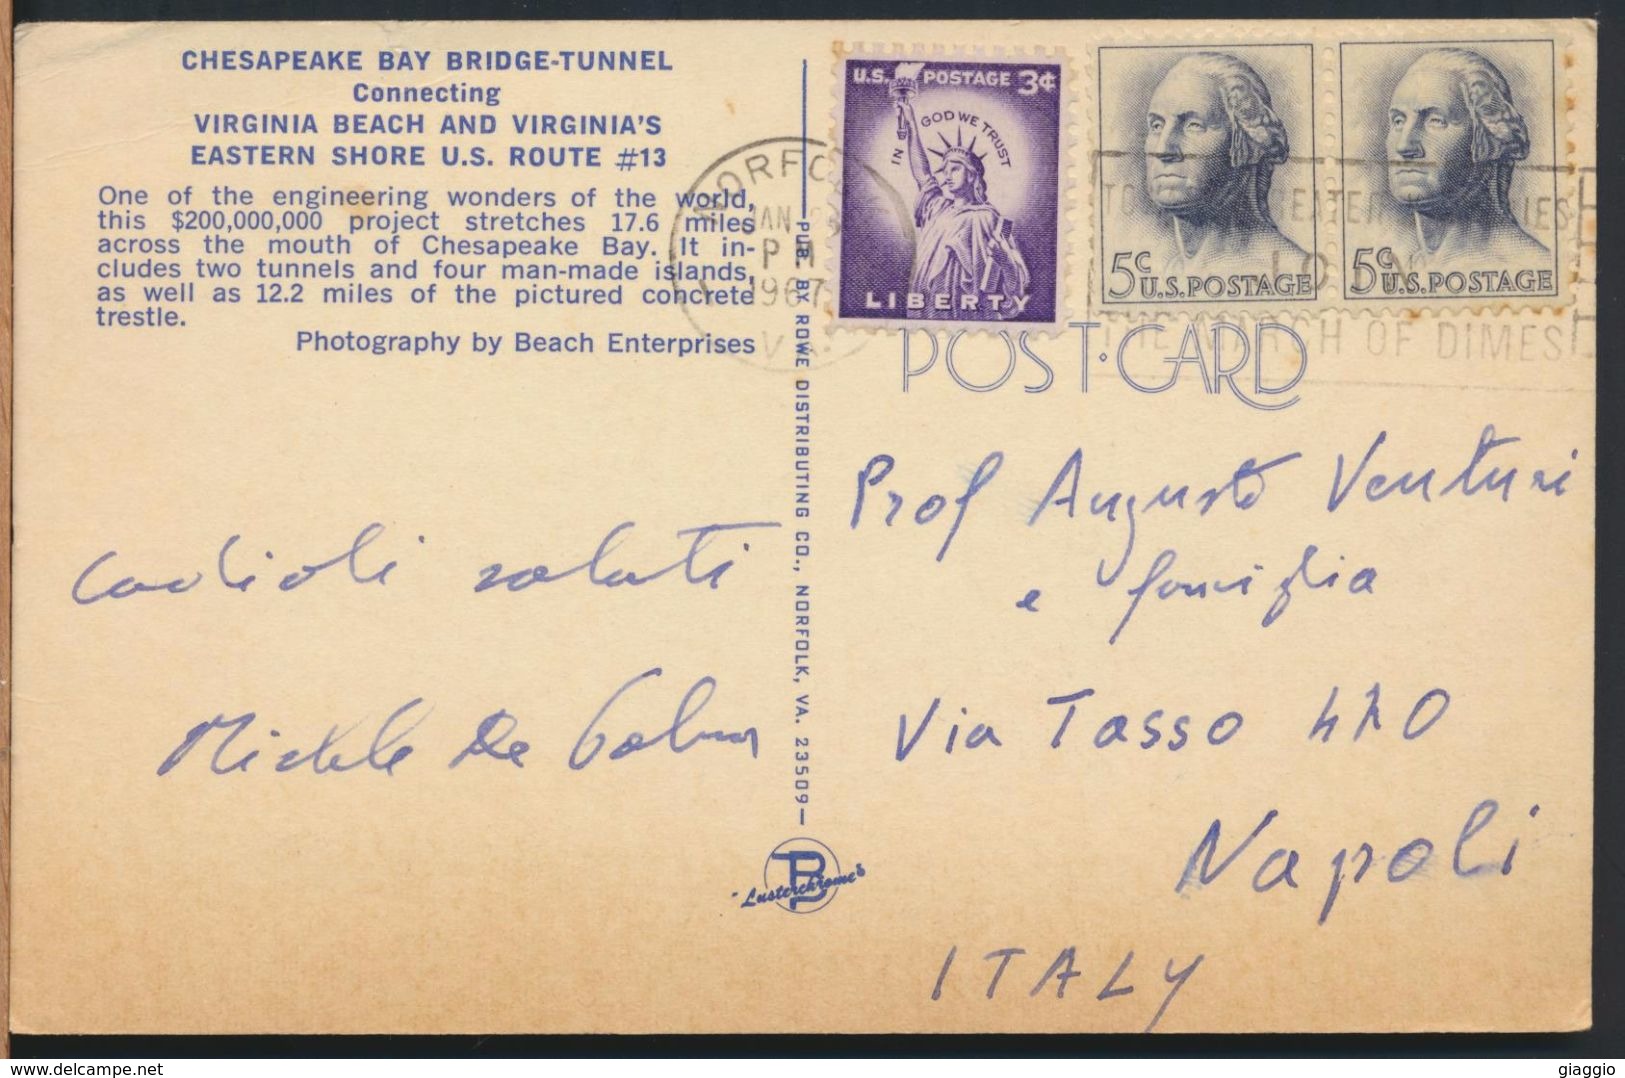 CHESAPEAKE BAY BRIDGE-TUNNEL
Connecting
VIRGINIA BEACH AND VIRGINIA'S
EASTERN SHORE U.S. ROUTE #13
One of the engineering wonders of the world,
this $200,000,000 project stretches 17.6 miles
across the mouth of Chesapeake Bay. It in-
cludes two tunnels and four man-made islands,
as well as 12.2 miles of the pictured concrete
trestle.
Photography by Beach Enterprises
Cordiali saluti
Michele De
PUB. BY ROWE DISTRIBUTING CO., NORFOLK, VA. 23509
"Lusterchrome"
U.S. POSTAGE 3¢
IN GOD WE TRUST
LIBERTY
5c
U.S.POSTAGE
5c
U.S.POSTAGE
JAN
PM
1967
VA.
JOIN
THE MARCH OF DIMES
POST·CARD
Prof Augusto Venturi
e famiglia
Via Tasso 480
Napoli
ITALY
giaggio
delcampe.net